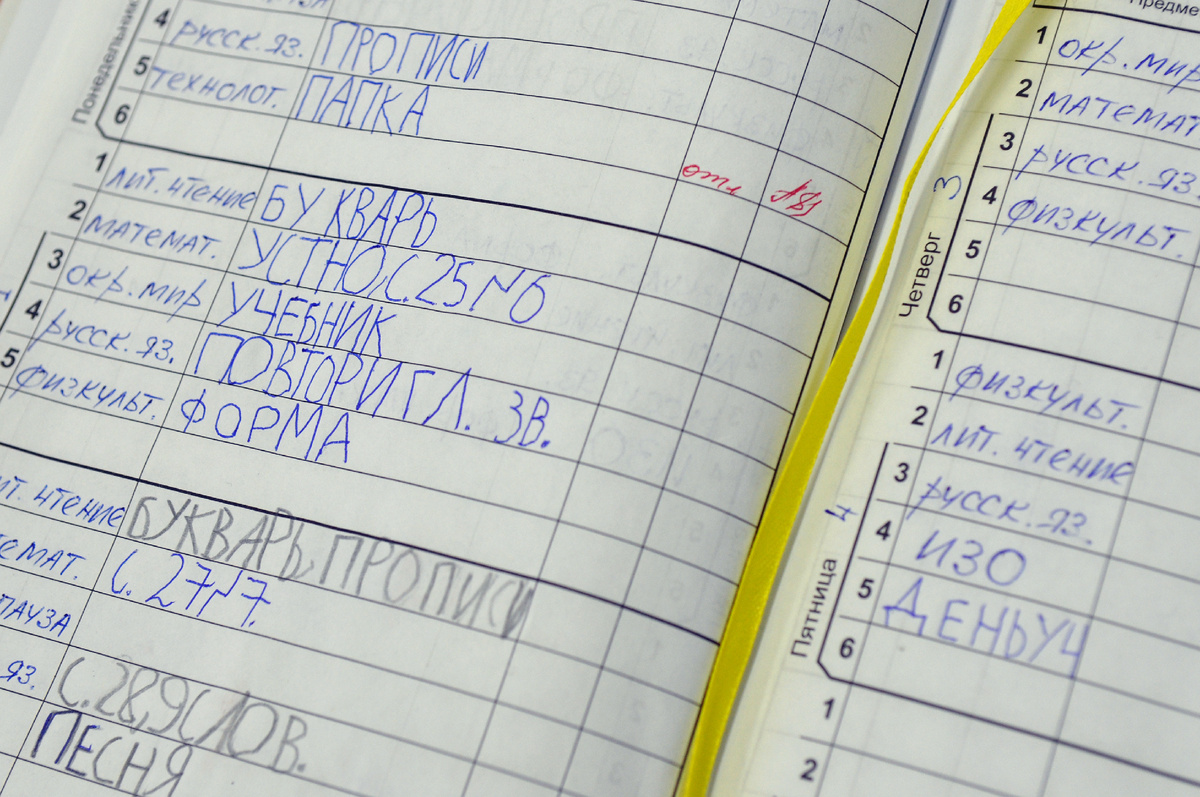 Понедельник
4 русск. яз. ПРОПИСИ
5 технолог. ПАПКА
6
отл
1 лит. чтение БУКВАРЬ
2 математ. УСТНО, С.25 №6
3 окр. мир УЧЕБНИК
4 русск. яз. ПОВТОРИ ГЛ. ЗВ.
5 физкульт. ФОРМА
ит. чтение БУКВАРЬ, ПРОПИСИ
емат. С. 27 №7.
ПАУЗА
яз. С.28, 9 СЛОВ.
ПЕСНЯ
Предме
Четверг 3
1 окр. мир
2 математ
3 русск. яз
4 физкульт.
5
6
Пятница 4
1 физкульт.
2 лит. чтение
3 русск. яз.
4 ИЗО
5 ДЕНЬ УЧ
6
1
2